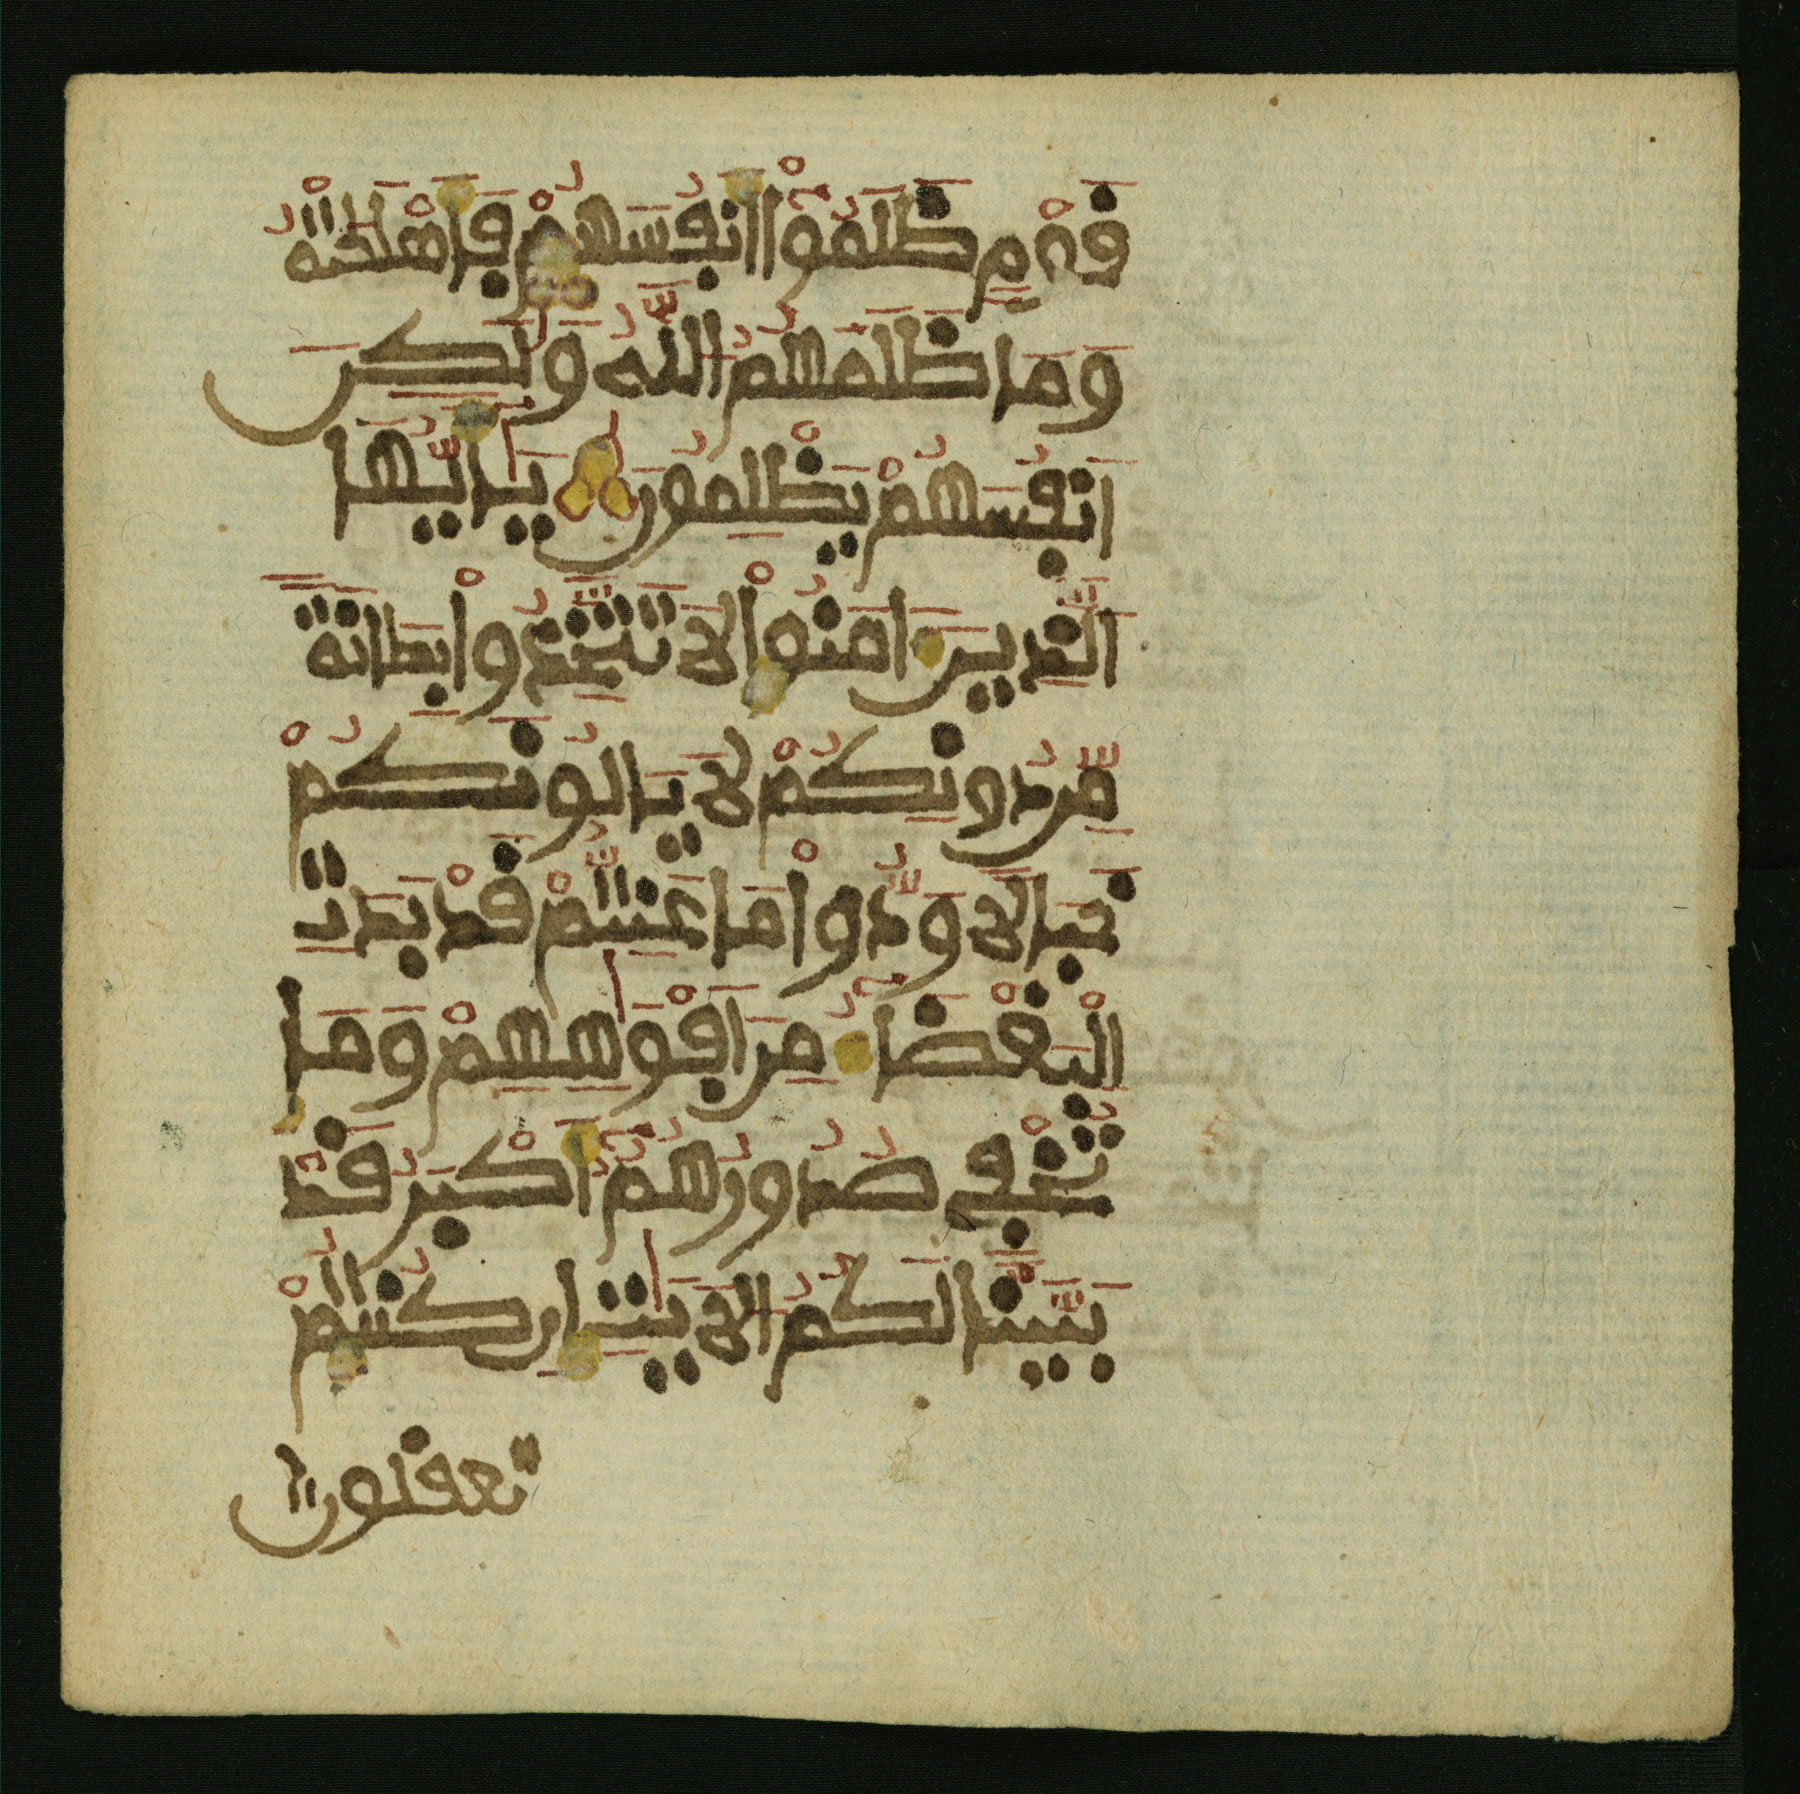 قَوْمٍ ظَلَمُوٓاْ أَنفُسَهُمْ فَأَهْلَكَتْهُ
وَمَا ظَلَمَهُمُ اللَّهُ وَلَٰكِنَ
اَنفُسَهُمْ يَظْلِمُونَ يَٰأَيُّهَا
الَّذِينَ ءَامَنُواْ لَا تَتَّخِذُواْ بِطَانَةً
مِّن دُونِكُمْ لَا يَالُونَكُمْ
خَبَالًا وَدُّواْ مَا عَنِتُّمْ قَدْ بَدَتِ
الْبَغْضَآءُ مِنَ اَفْوَٰهِهِمْ وَمَا
تُخْفِي صُدُورُهُمُۥٓ أَكْبَرُ قَدْ
بَيَّنَّا لَكُمُ الَايَٰتِ إِن كُنتُمْ
تعقلون